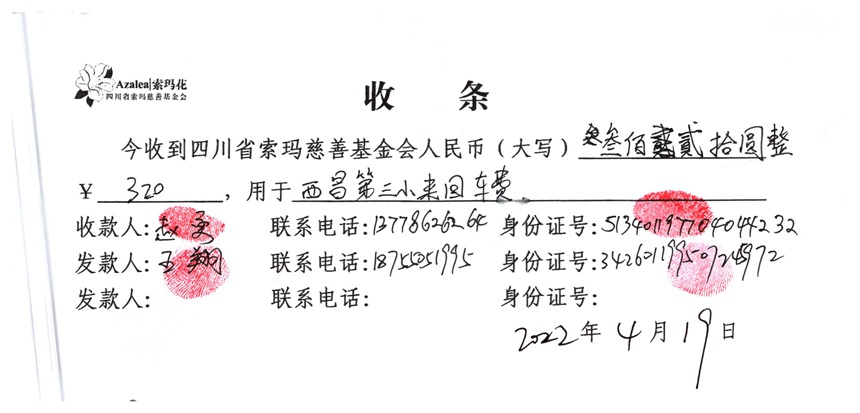 Azalea|索玛花
四川省索玛慈善基金会
收 条
今收到四川省索玛慈善基金会人民币（大写）叁佰贰拾圆整
￥ 320 ，用于西昌第三小来回车费
收款人: 赵 联系电话:13778626264 身份证号:513401197704044232
发款人:王翔 联系电话:18755051995 身份证号:
发款人: 联系电话: 身份证号:
2022年4月19日